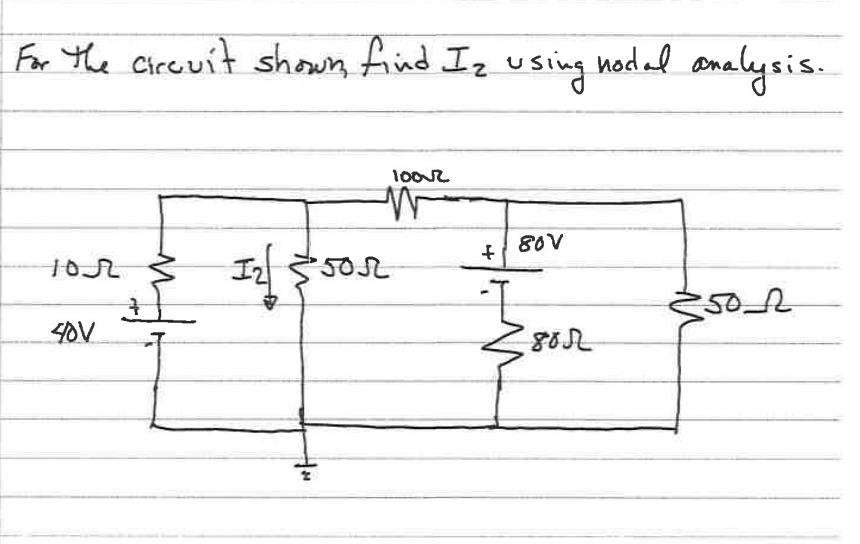 For the circuit shown, find I2 using nodal analysis.
100Ω
10Ω
I2
50Ω
+ 80V
-
+
40V
-
80Ω
50Ω